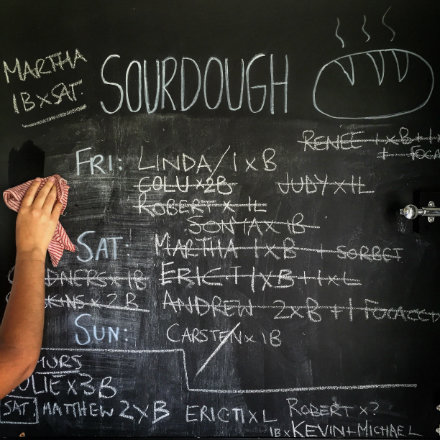 MARTHA
1BxSAT
SOURDOUGH
RENÉE 1xB+1
FRI: LINDA/1xB
COLUx2B JUDYx1L
ROBERTx1L
SONIAx1B
SAT: MARTHA 1xB + SORBET
DNERSx1B ERIC-T1xB+1xL
KINSx2B ANDREW 2xB+1FOCACC
SUN: CARSTENx1B
HURS
JULIEx3B
SAT MATTHEW2xB ERICT1xL ROBERTx?
1BxKEVIN+MICHAEL